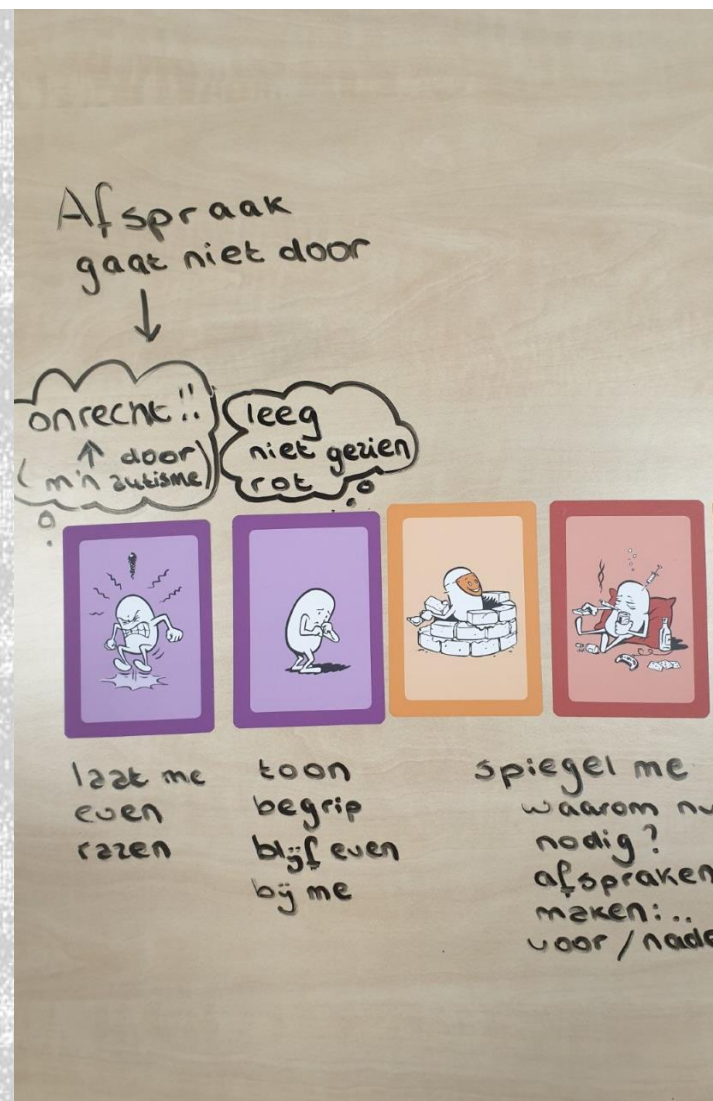 Afspraak
gaat niet door
onrecht!!
↑ door
(m'n autisme)
leeg
niet gezien
rot
laat me
even
razen
toon
begrip
blijf even
bij me
spiegel me
waarom
nodig?
afspraken
maken:..
voor /